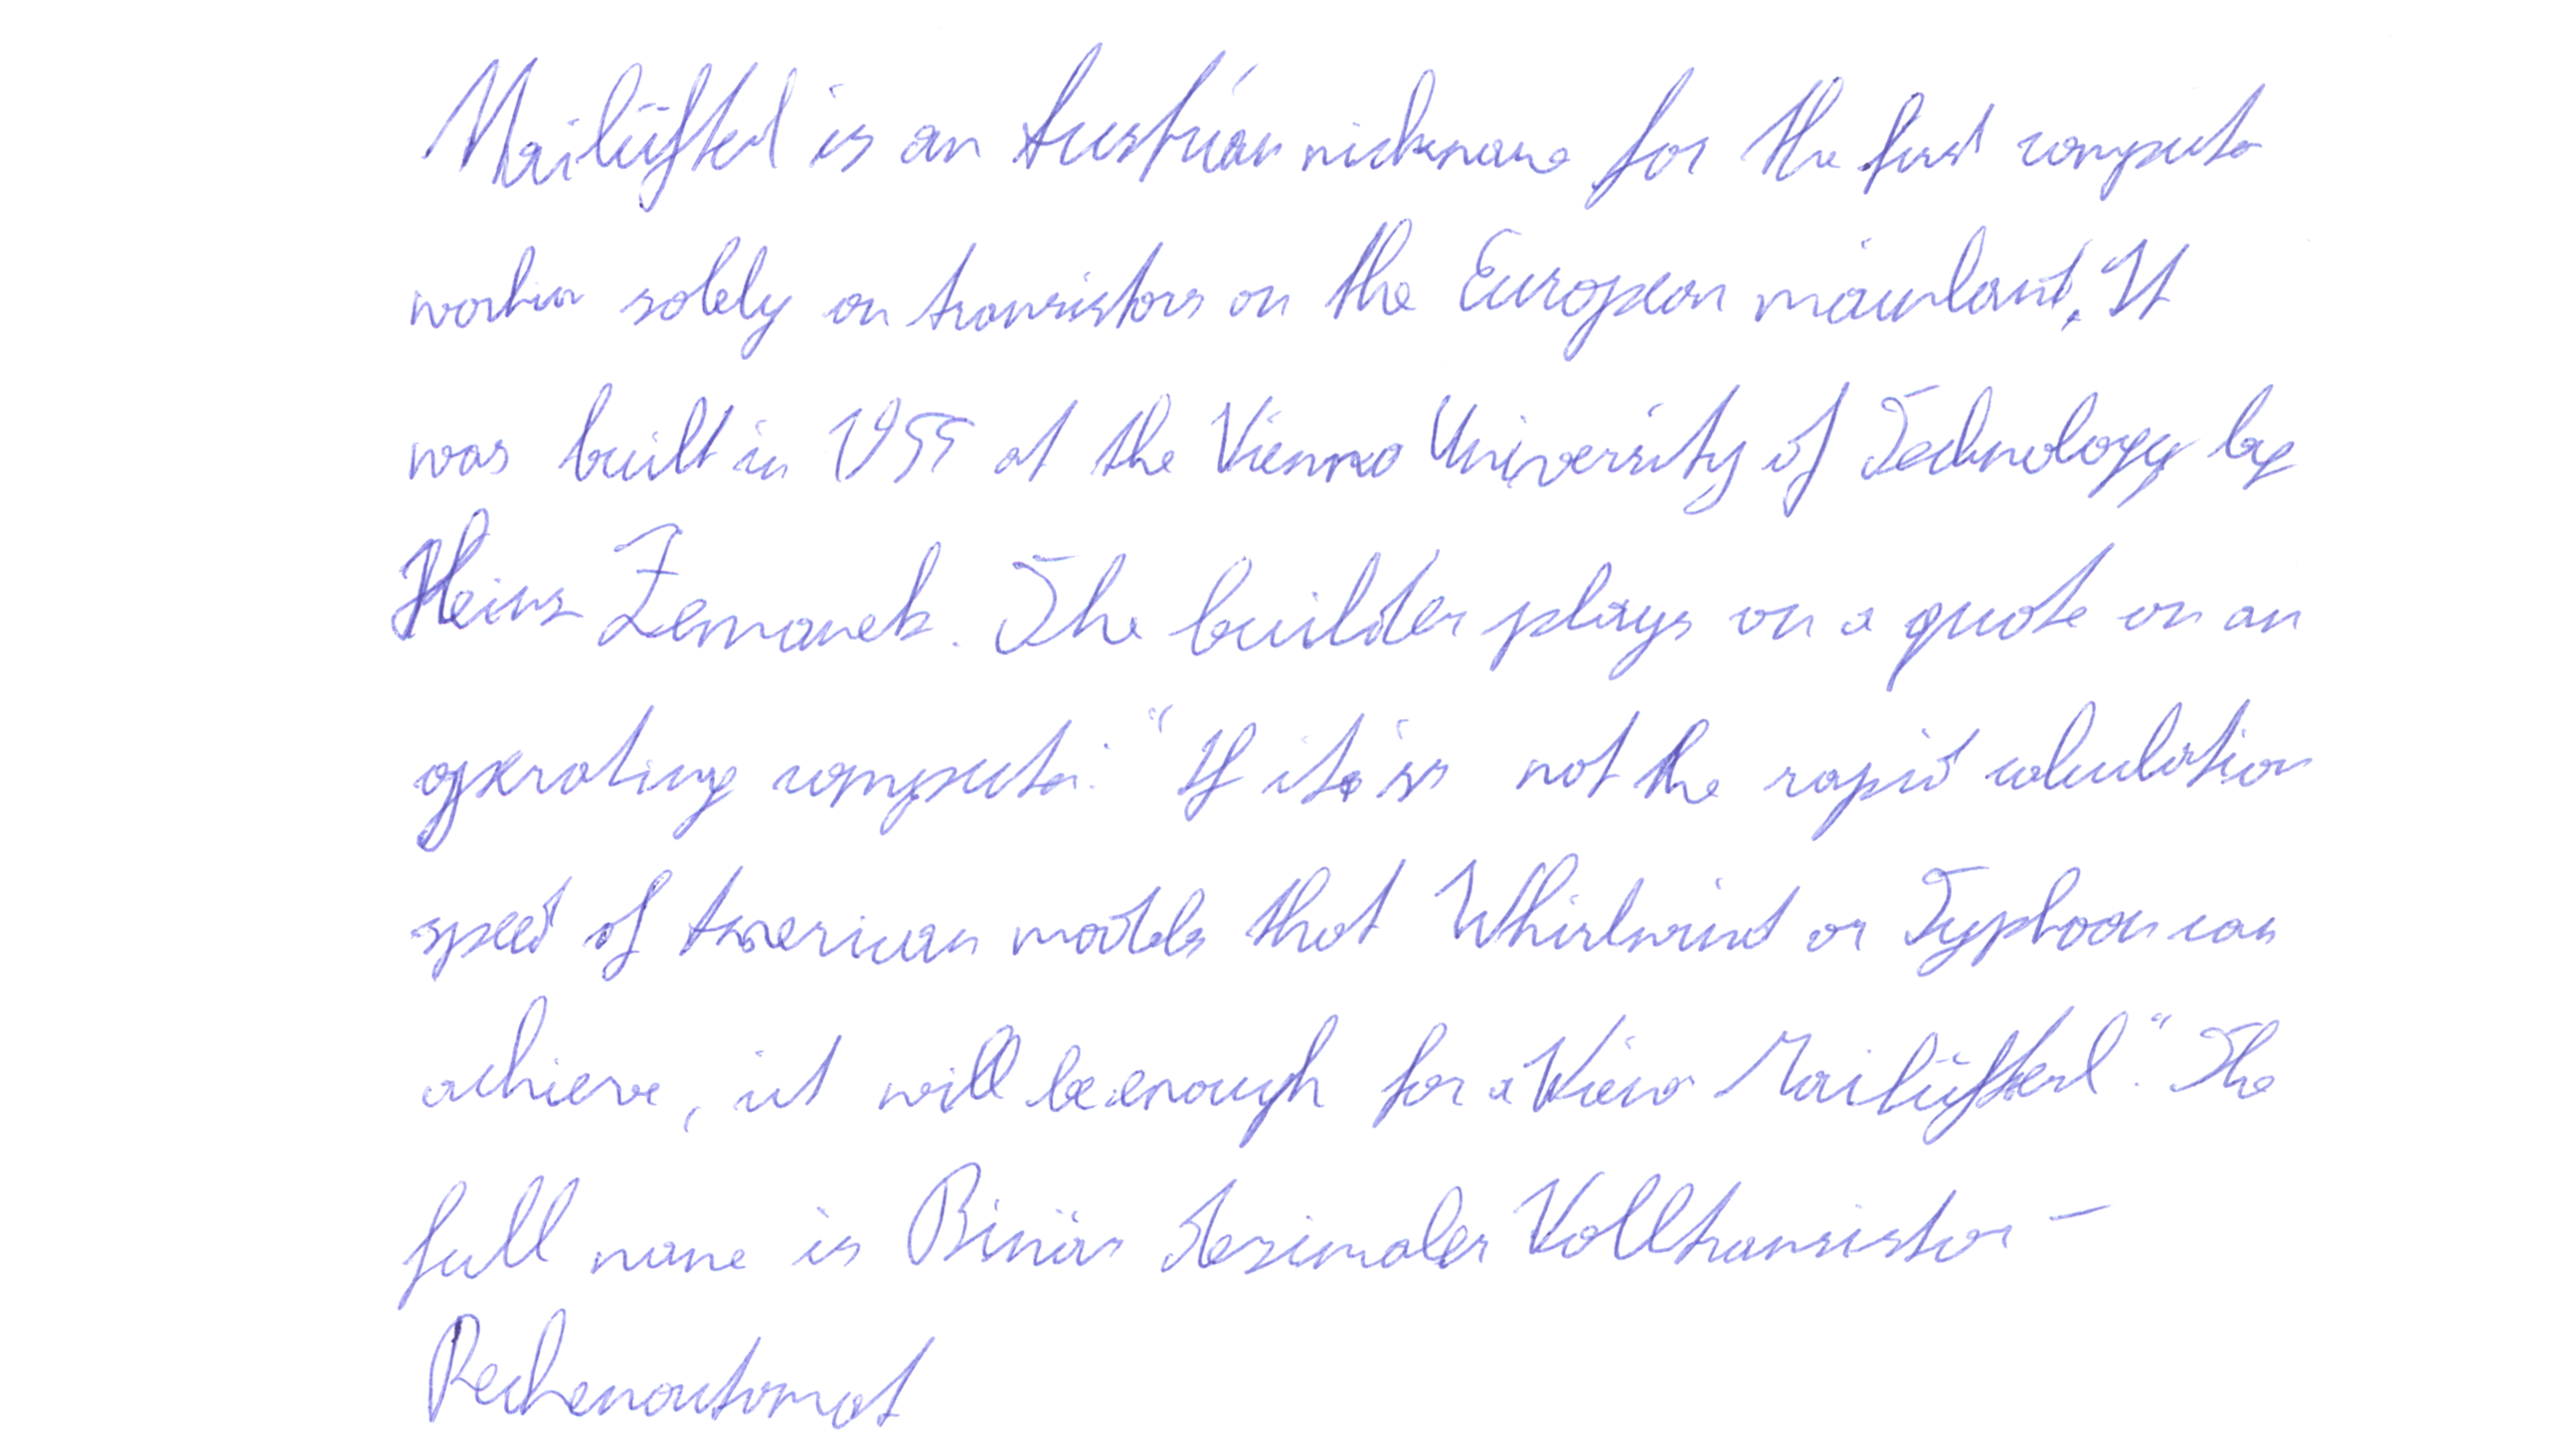 Mailüfterl is an Austrian nickname for the first computer
workin solely on transistors on the European mainland. It
was built in 1955 at the Vienna University of Technology by
Heinz Zemanek. The builder plays on a quote on an
operating computer: "If it is not the rapid calculation
speed of American models that Whirlwind or Typhoon can
achieve, it will be enough for a Wiena Mailüfterl". The
full name is Binär dezimaler Volltransistor-
Rechenautomat